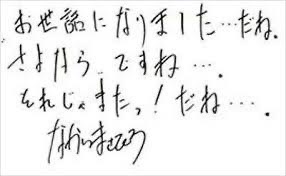 お世話になりました…だね.
さよなら…ですね….
それじゃまたっ!だね….
なかいまさひろ